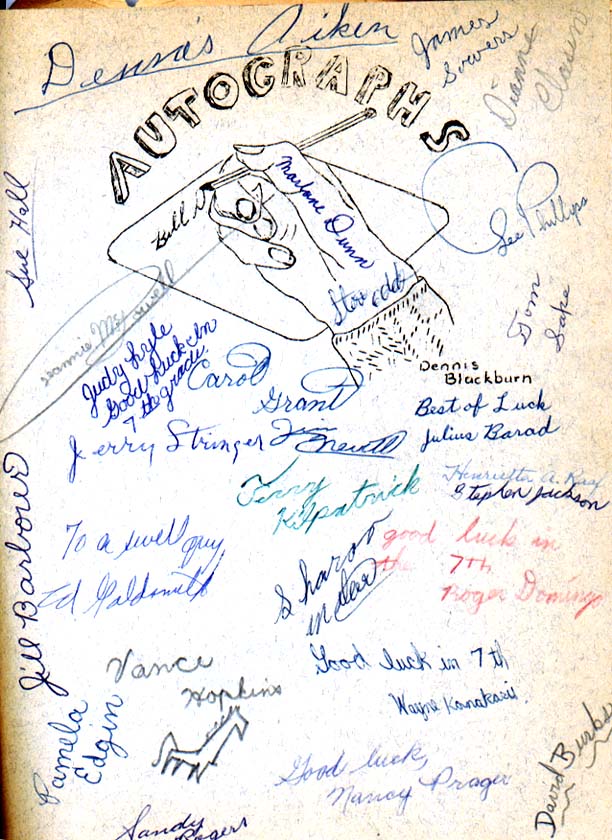 Dennis Aiken
James
Sowers
Dianne
Clasen
AUTOGRAPHS
Bull
Marlane Dunn
Lee Phillips
Sue Hall
Stoddt
Tom
Sake
Jeannie McDowell
Judy Lyle
Good Luck In
7 the grade
Carol
Grant
Dennis
Blackburn
Best of Luck
Julius Barad
Jerry Stringer
Jim
Nevitt
Henrietta A. Ray
Stephen Jackson
Terry
Kilpatrick
Jill Barbour
To a swell guy,
Ed Goldsmith
Sharon
good luck in
the 7th
Roger Domingo
Vance
Hopkins
Good luck in 7th
Wayne
Pamela
Edgin
Good luck,
Nancy Prager
David Burke
Sandy
Rogers